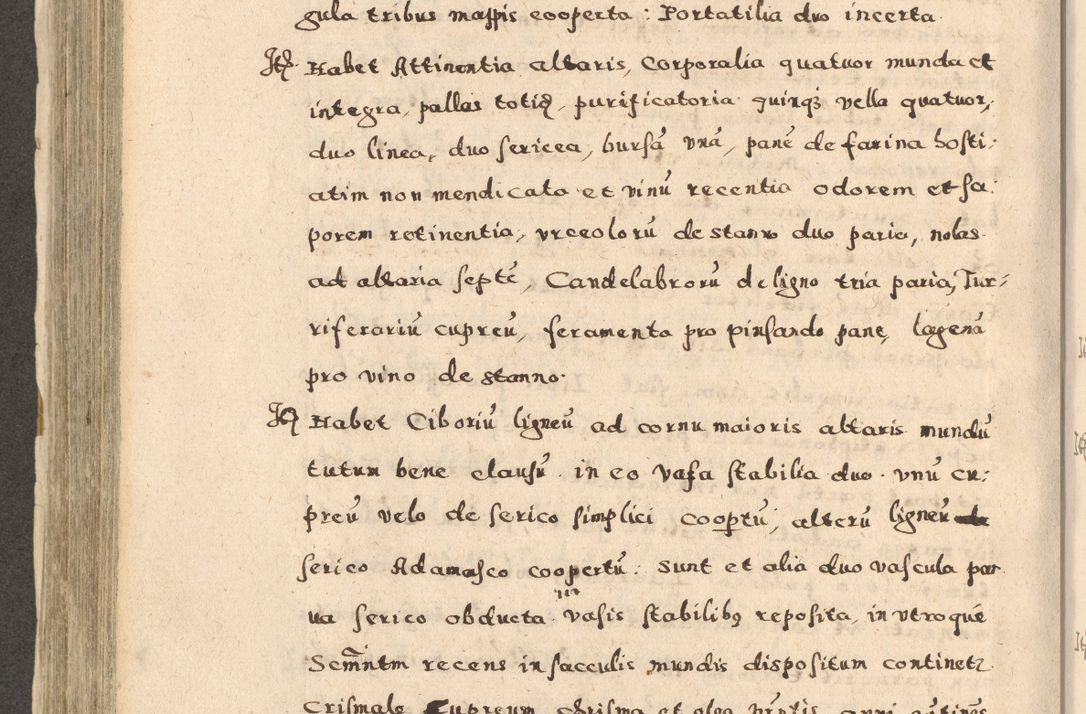 gula tribus mappis cooperta: Portatilia duo incerta.
Itē Habet Attinentia altaris, Corporalia quatuor munda et
integra, pallas totiq, purificatoria quinq; vella quatuor,
duo linea, duo sericea, bursā unā, panē de farina hosti-
atim non mendicato et vinū recentia odorem et sa-
porem retinentia, vrceolorū de stanno duo paria, nolas
ad altaria septē, Candelabrorū de ligno tria paria, Tur-
riferariū cupreū, feramenta pro pinsando pane, lagenā
pro vino de stanno.
Itē Habet Ciboriū ligneū ad cornu maioris altaris mundū
tutum bene clausū. in eo vasa stabilia duo. vnū cu-
preū velo de serico simplici coopertū, alterū ligneū de
serico Adamasco coopertū: sunt et alia duo vascula par-
ua serico obducta in vasis stabilibq reposita, in vtroque
Scm̄ntm recens in sacculis mundis dispositum continetr
Crismale Cupreum Chrisma et olea